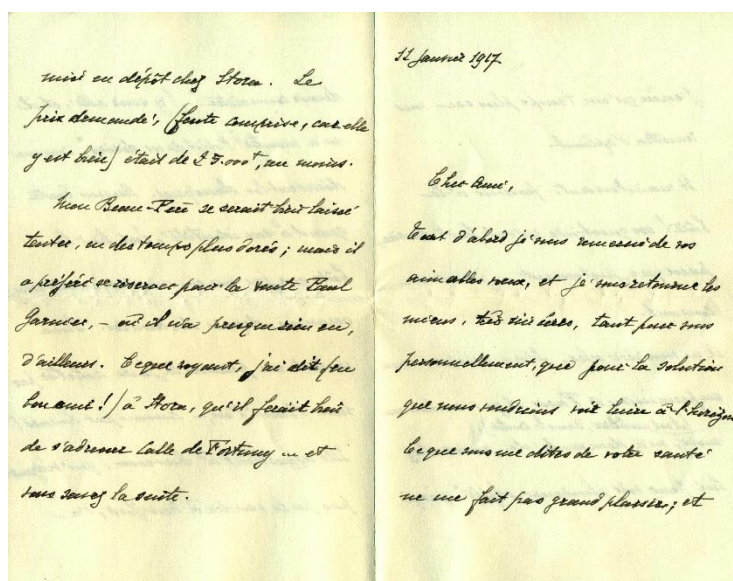 mise en dépôt chez Stora. Le
prix demandé, (fente comprise, car elle
y est bien) était de au moins.
Mon Beau-Père se serait bien laissé
tenter, en des temps plus dorés ; mais il
a préféré se réserver pour la vente Paul
Garnier, – où il n'a presque rien eu,
d'ailleurs. Ce que voyant, j'ai dit (en
bon ami !) à Stora, qu'il ferait bien
de s'adresser Calle de Fortuny ... et
vous savez la suite.
11 Janvier 1917
Cher Ami,
Tout d'abord je vous remercie de vos
aimables vœux, et je vous retourne les
miens, très sincères, tant pour vous
personnellement, que pour la solution
que nous voudrions voir luire à l'horizon
Ce que vous me dites de votre santé
ne me fait pas grand plaisir ; et